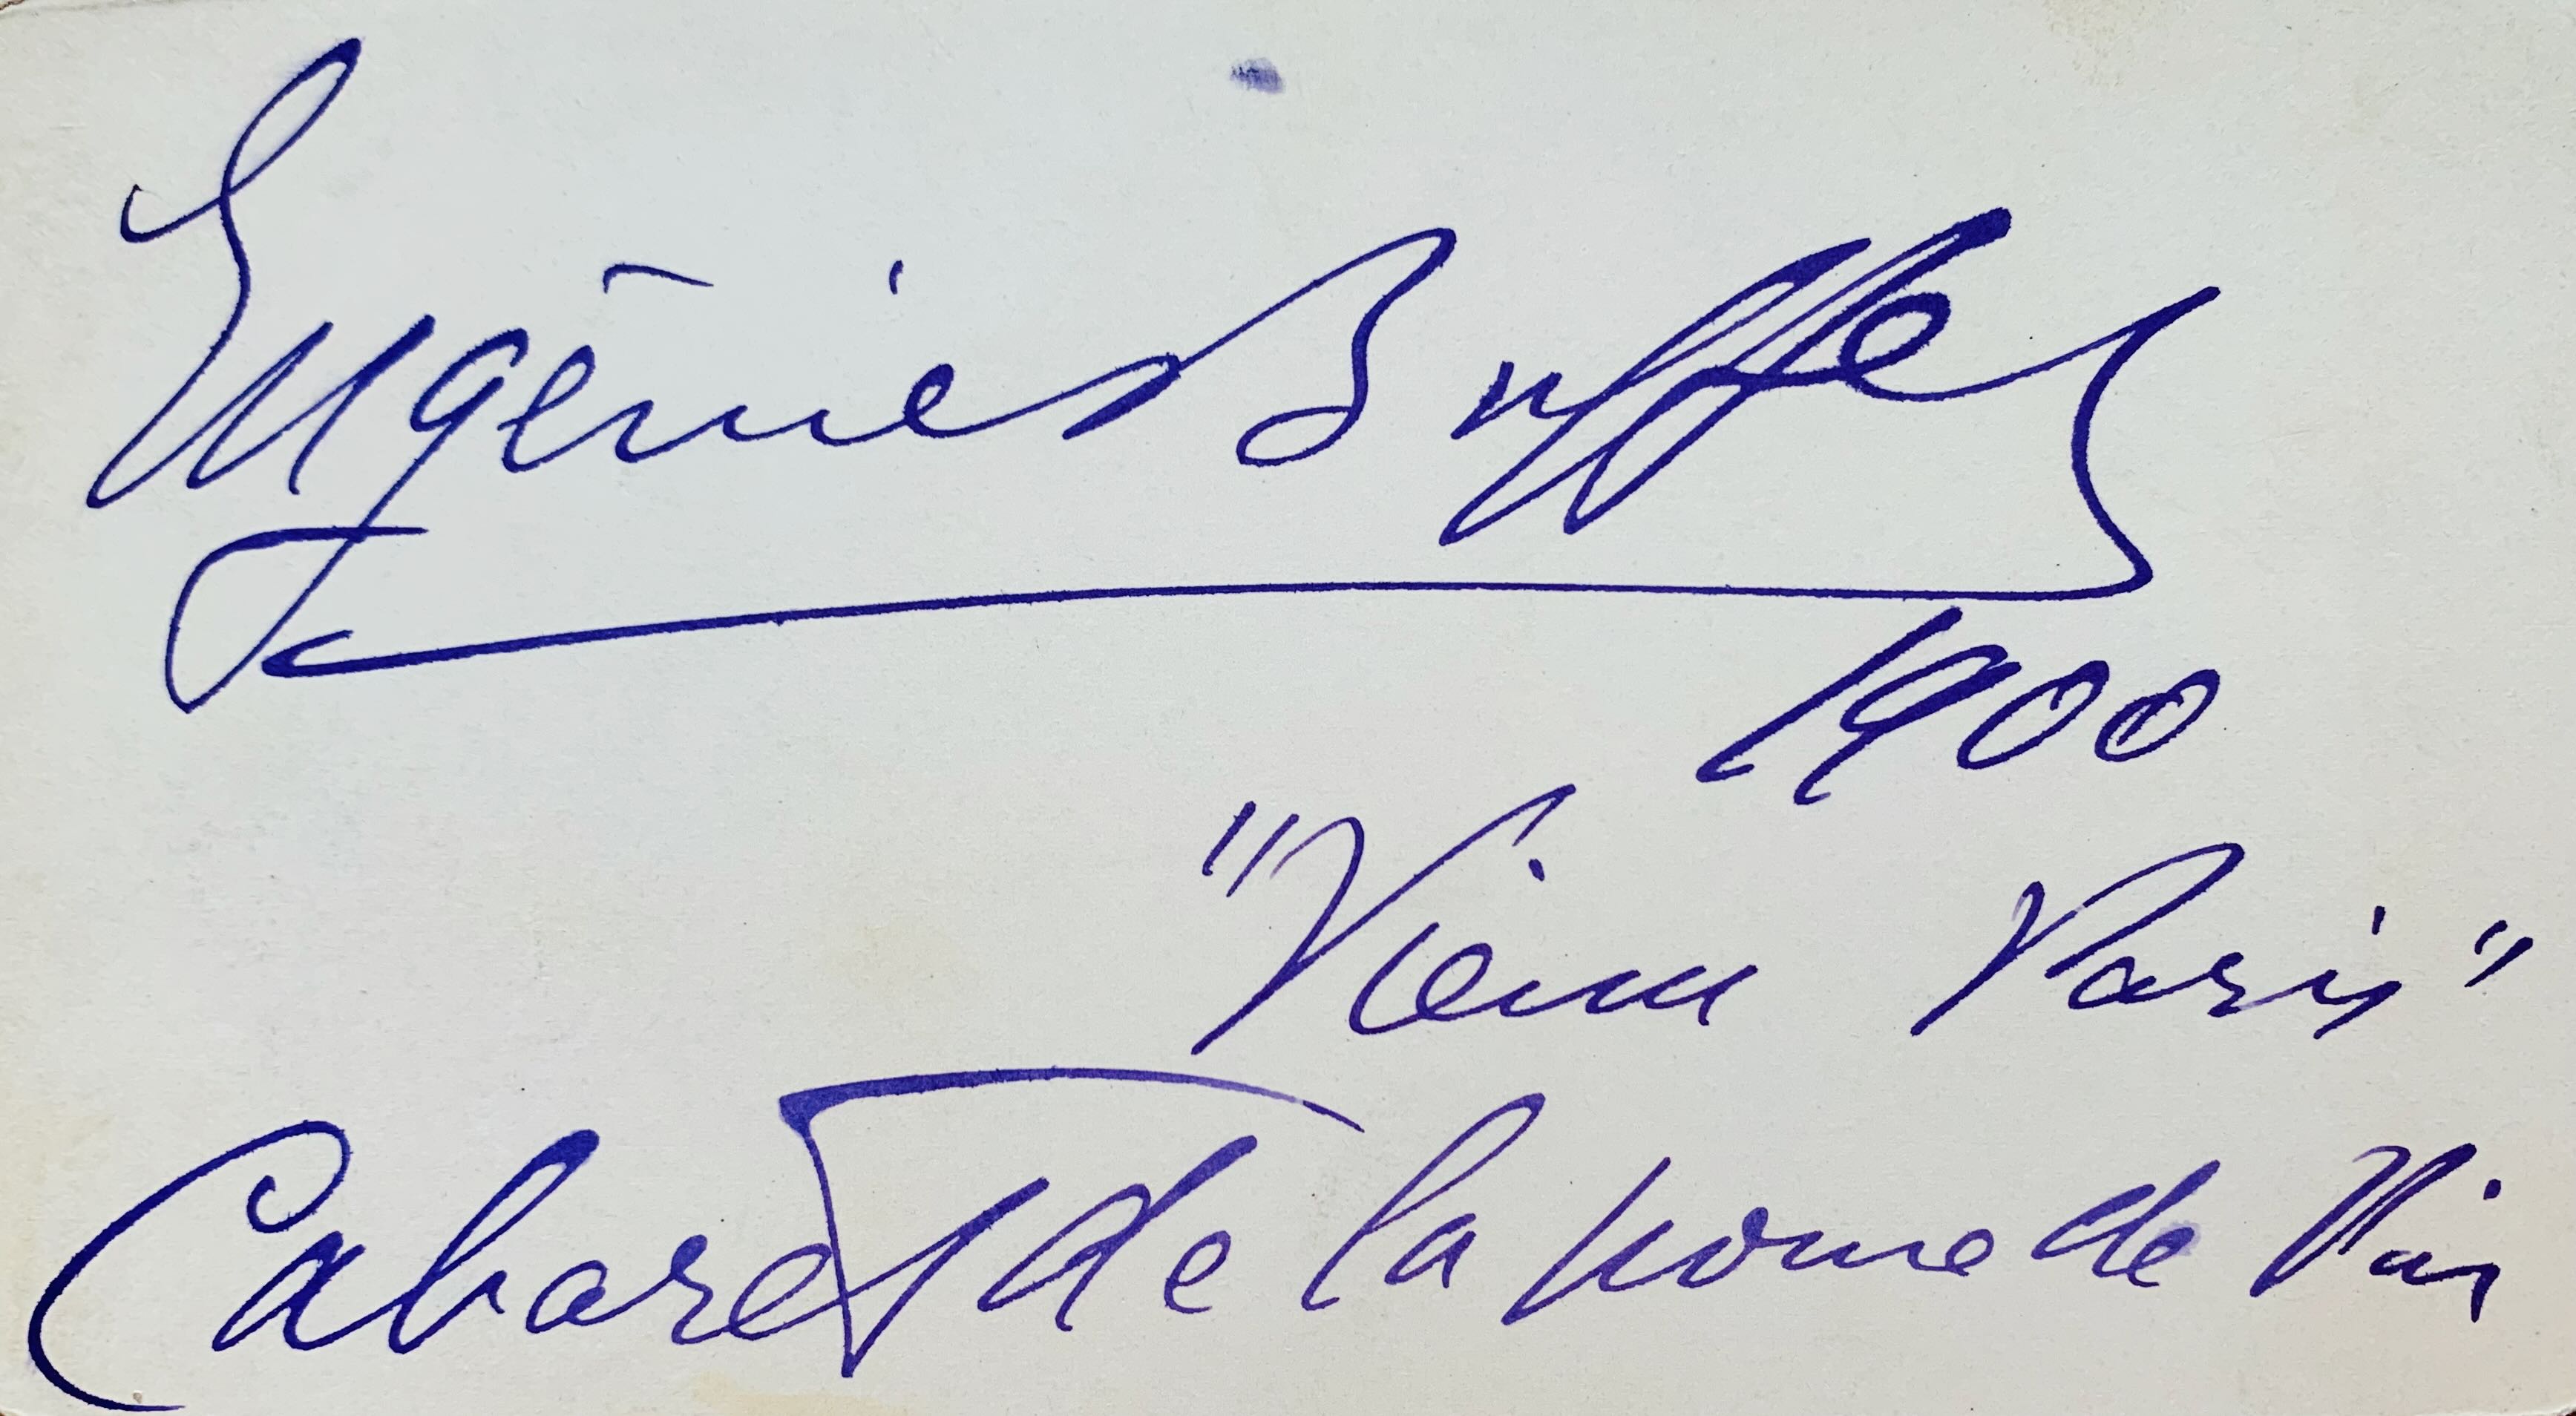 Eugénie Buffet
1900
"Vieux Paris"
Cabaret de la pome de Pin